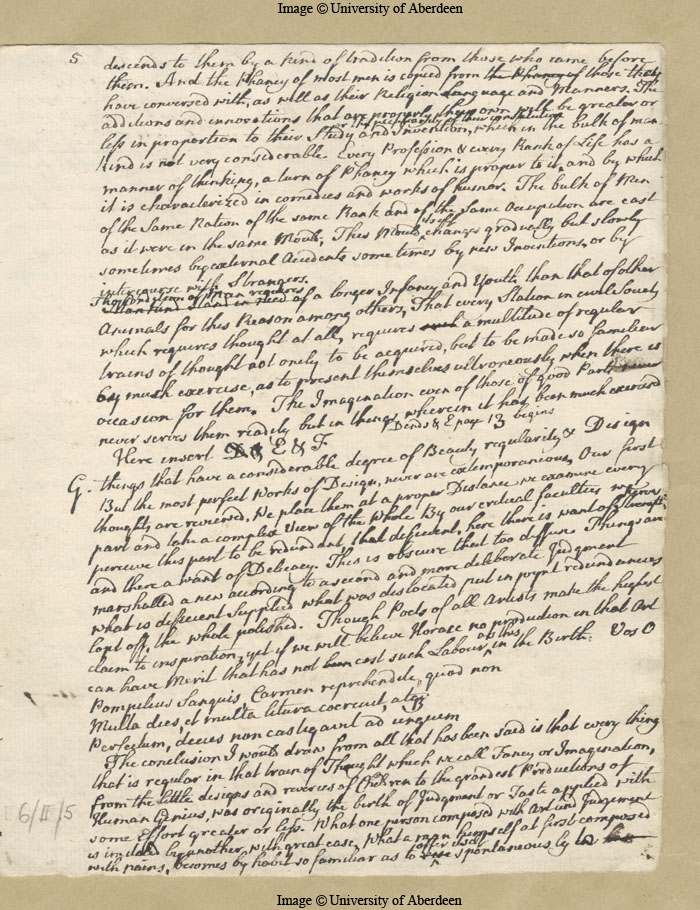 Image © University of Aberdeen
5
descends to them by a kind of tradition from those who came before
them. And the Phancy of most men is copied from the Phancy of those they
have conversed with, as well as their Religion Language and Manners. The
additions and innovations that are properly their own will be greater or
or the peculiarity of their constitution
less in proportion to their Study and Invention, which in the bulk of man
kind is not very considerable. Every Profession & every Rank of Life has a
manner of thinking, a turn of Phancy which is proper to it, and by which
it is characterized in comedies and works of humor. The bulk of Men
of the Same Nation of the same Rank and of the Same Occupation are cast
as it were in the same Mould; This Mould itself changes gradually but slowly
sometimes by external Accidents some times by new Inventions, or by
intercourse with Strangers.
The Condition of Men requires
Mankind Stand in need of a longer Infancy and Youth than that of other
Animals for this Reason among others, That every Station in civil Society
which requires thought at all, requires such a multitude of regular
trains of thought not only to be acquired, but to be made so familiar
by much exercise, as to present themselves ultroneously when there is
occasion for them. The Imagination even of those of good Parts never
never serves them readily but in things wherein it has been much exercised
Here insert D & E & F.
D ends & E page 13 begins
G. things that have a considerable degree of Beauty regularity & Design
But the most perfect works of Design, never are extemporaneous, Our first
thoughts are reviewed, We place them at a proper Distance we examine every
part and take a complex View of the whole By our critical faculties we now
perceive this part to be redundant that deficient, here there is want of Strength,
and there a want of Delicacy. This is obscure that too diffuse. Things are
marshalled a new according to a second and more deliberate Judgment
what is deficient Supplied what was dislocated put in joynt redundancies
lopt off, the whole polished. Though Poets of all Artists make the highest
claim to inspiration, yet if we will believe Horace no production in that Art
can have Merit that has not cost such Labour, as this in the Birth. Vos O
Pompilius Sanguis, Carmen reprehendite, quod non
Multa dies, et multa litura coercuit, atq
Perfectum, decies non castigavit ad unguem
The conclusion I would draw from all that has been said is that every thing
that is regular in that train of Thought which we call Fancy or Imagination,
from the little designs and reveries of Children to the grandest Productions of
Human Genius, was originally the birth of Judgment or Taste applied with
some Effort greater or less. What one person composed with Art and Judgement
is imitated by another with great ease, What a man himself at first composed
with pains, becomes by habit so familiar as to offer itself spontaneously to
6/II/5
Image © University of Aberdeen